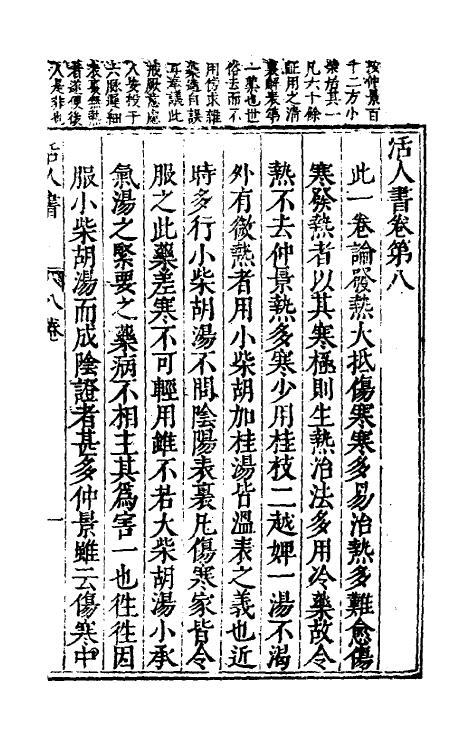 活人書卷第八
此一卷論發熱大抵傷寒寒多易治熱多難愈傷
寒發熱者以其寒極則生熱治法多用冷藥故令
熱不去仲景熱多寒少用桂枝二越婢一湯不渴
外有微熱者用小柴胡加桂湯皆溫表之義也近
時多行小柴胡湯不問陰陽表裏凡傷寒家皆令
服之此藥差寒不可輕用雖不若大柴胡湯小承
氣湯之緊要之藥病不相主其爲害一也徃徃因
服小柴胡湯而成陰證者甚多仲景雖云傷寒中
活人書
八卷
一
按仲景百
十二方小
柴胡其一
凡六十餘
証用之清
裏解表第
一藥也世
俗去而不
用傍求雜
藥遺自誤
耳
戒厥
人妄投于
六厥
表裏無熱
者遂使後
人是非也